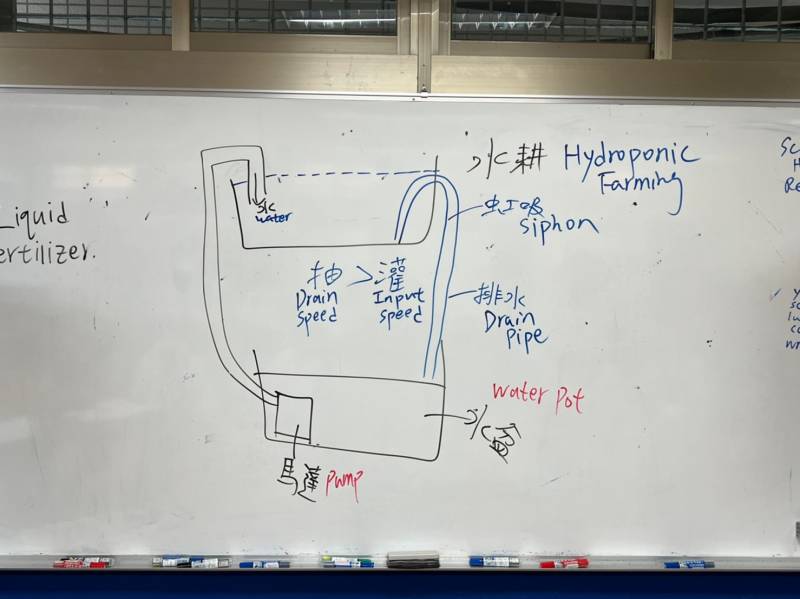 Liquid
ertilizer.
水
water
水耕 Hydroponic
Farming
虹吸
siphon
抽 > 灌
Drain Input
speed speed
排水
Drain
pipe
water pot
水盆
馬達 pump